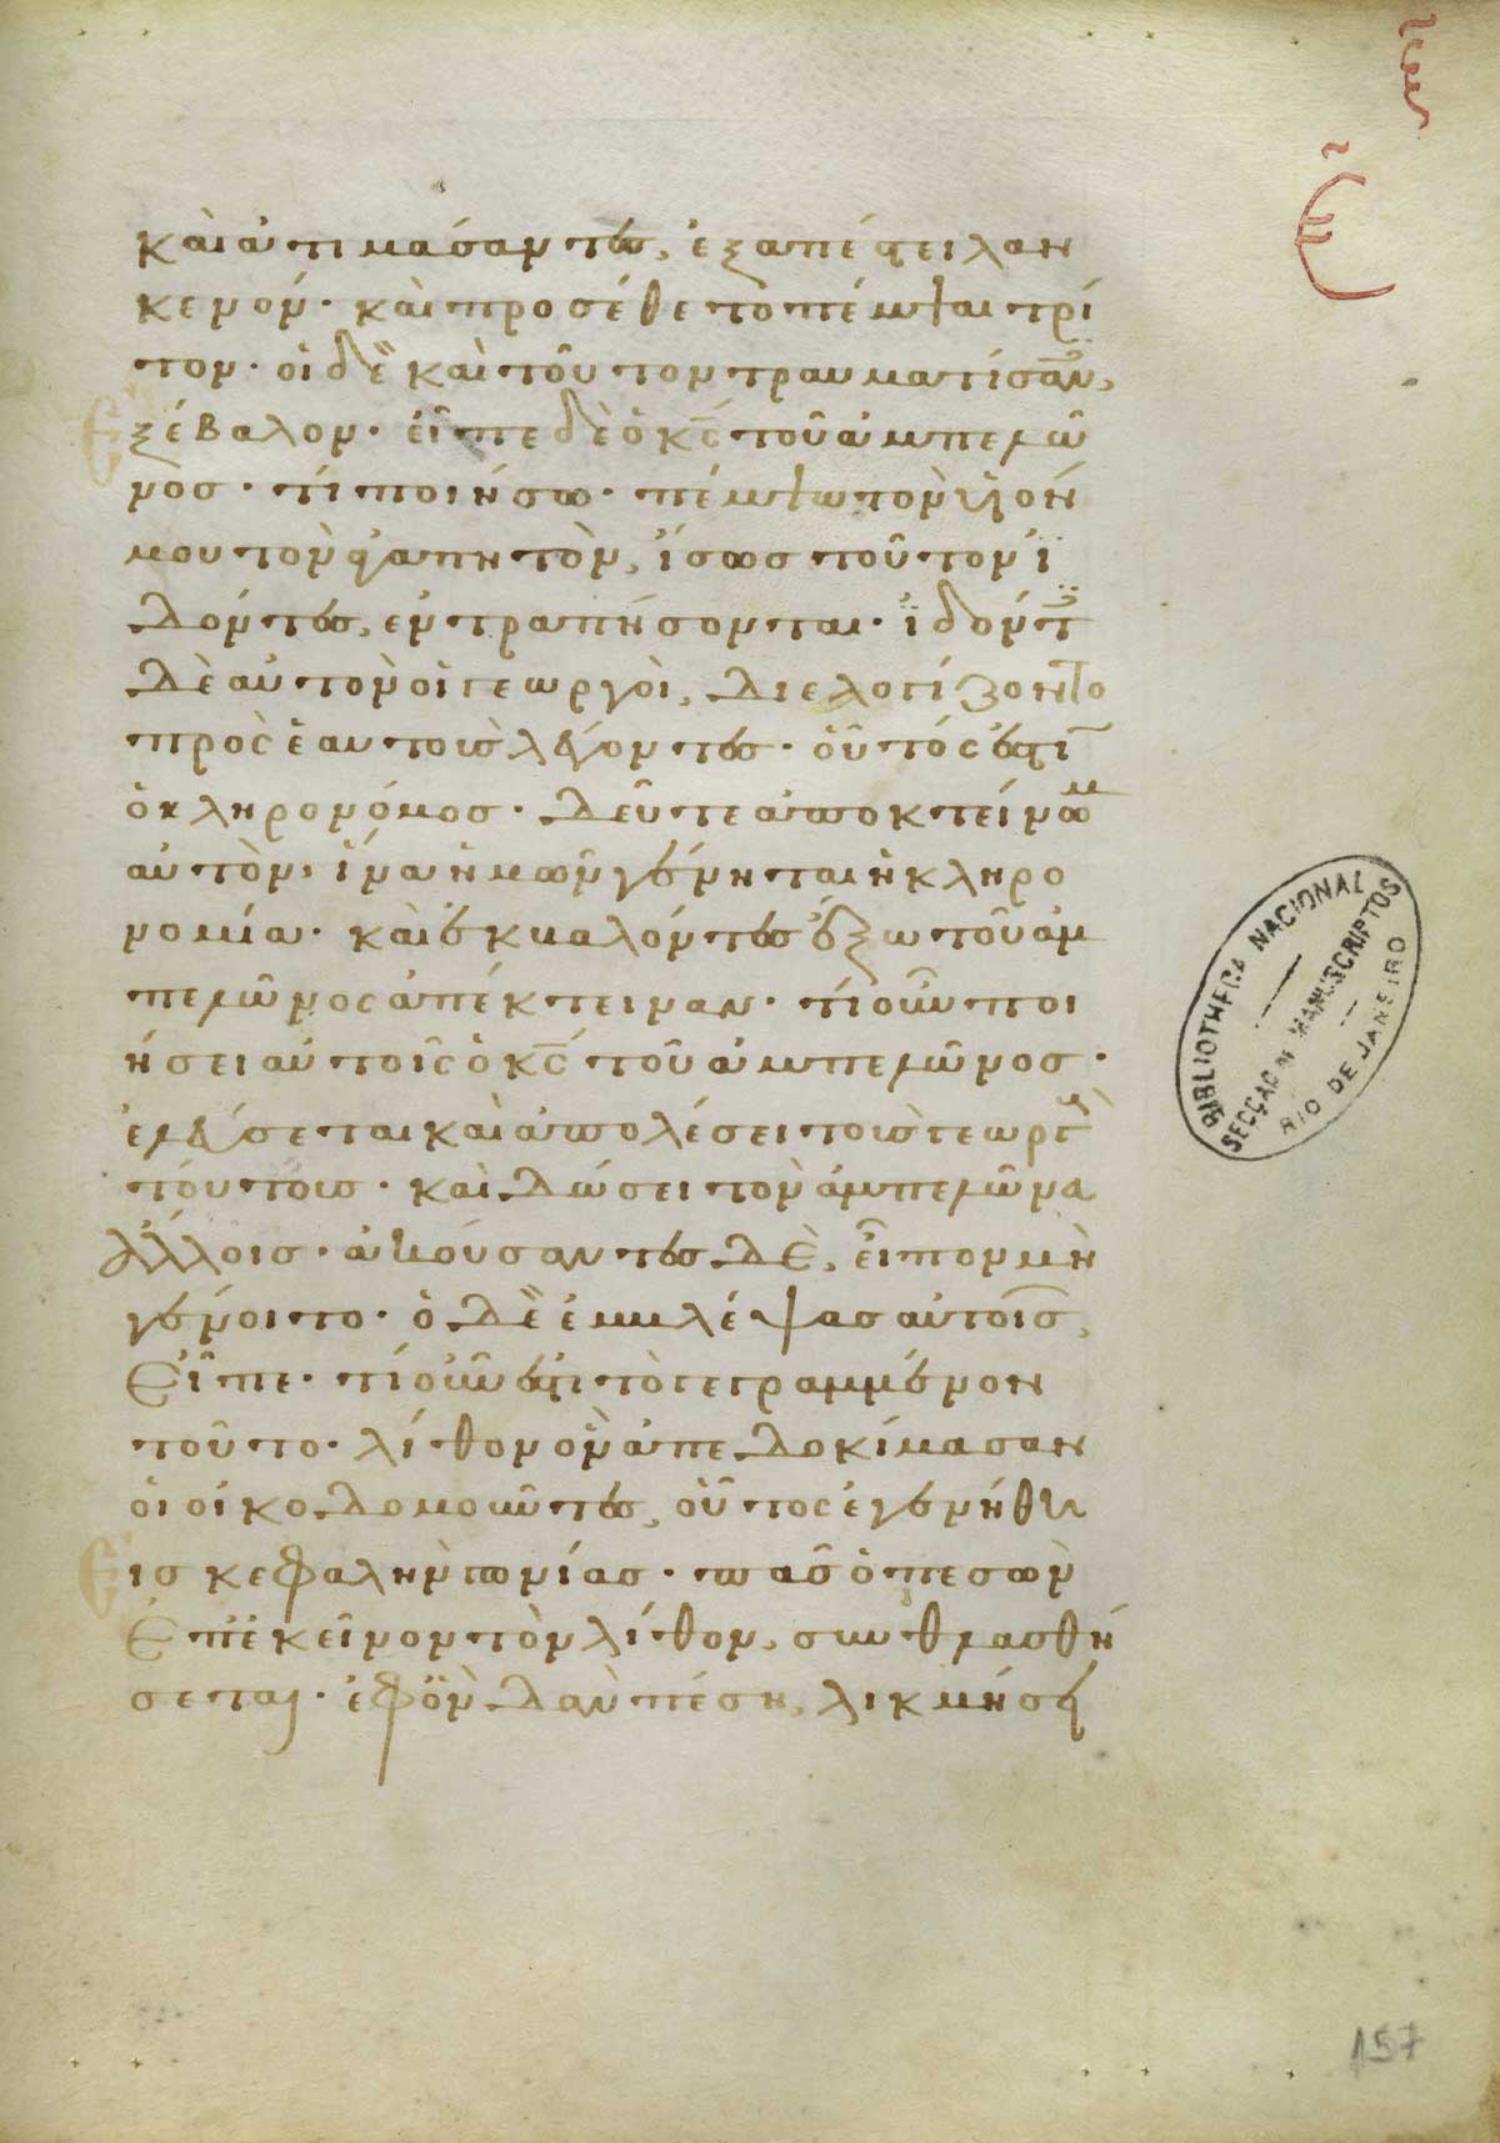 καὶ ἀτιμάσαντες, ἐξαπέστειλαν
κενόν· καὶ προσέθετο πέμψαι τρί
τον· οἱ δὲ καὶ τοῦτον τραυματίσαν,
ξέβαλον· εἶπε δὲ ὁ κς τοῦ ἀμπελῶ
νος· τί ποιήσω· πέμψω τὸν υἱόν
μου τὸν ἀγαπητὸν, ἴσως τοῦτον ἰ
δόντες, ἐντραπήσονται· ἰδόντ
δὲ αὐτὸν οἱ γεωργοὶ, διελογίζοντο
πρὸς ἑαυτοὺς λέγοντες· οὗτός ἐστιν
ὁ κληρονόμος· δεῦτε ἀποκτείνωμ
αὐτὸν, ἵνα ἡμῶν γένηται ἡ κληρο
νομία· καὶ ἐκβαλόντες ἔξω τοῦ ἀμ
πελῶνος ἀπέκτειναν· τί οὖν ποι
ήσει αὐτοῖς ὁ κς τοῦ ἀμπελῶνος·
ἐλεύσεται καὶ ἀπολέσει τοὺς γεωργ
τούτους· καὶ δώσει τὸν ἀμπελῶνα
ἄλλοις· ἀκούσαντες δὲ, εἶπον μὴ
γένοιτο· ὁ δὲ ἐμβλέψας αὐτοῖς,
εἶπε· τί οὖν ἐστι τὸ γεγραμμένον
τοῦτο· λίθον ὃν ἀπεδοκίμασαν
οἱ οἰκοδομοῦντες, οὗτος ἐγενήθη
εἰς κεφαλὴν γωνίας· πᾶς ὁ πεσὼν
ἐπ ἐκεῖνον τὸν λίθον, συνθλασθή
σεται· ἐφ ὃν δ ἂν πέση, λικμήσει
BIBLIOTHECA NACIONAL
SECÇÃO DE MANUSCRIPTOS
RIO DE JANEIRO
157